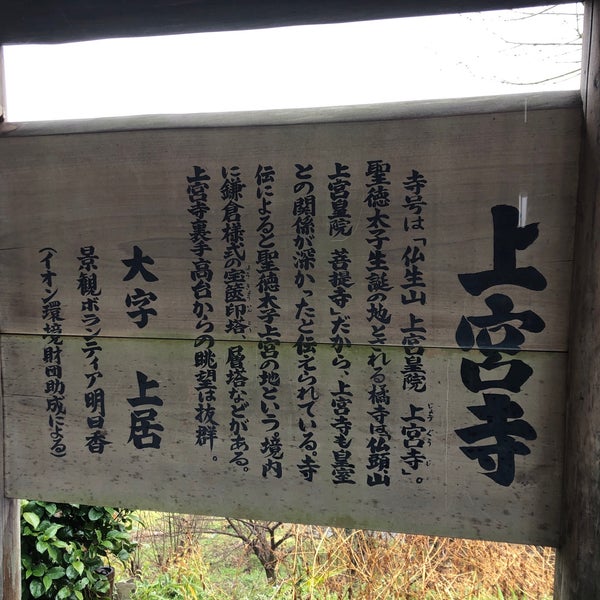 上宮寺
寺号は「仏生山 上宮皇院 上宮寺」。
じょうぐうじ
聖徳太子生誕の地とされる橘寺は「仏頭山
上宮皇院 菩提寺」だから、上宮寺も皇室
との関係が深かったと伝えられている。寺
伝によると聖徳太子上宮の地という。境内
に鎌倉様式の宝篋印塔、層塔などがある。
上宮寺裏手高台からの眺望は抜群。
大字 上居
景観ボランティア明日香
(イオン環境財団助成による)